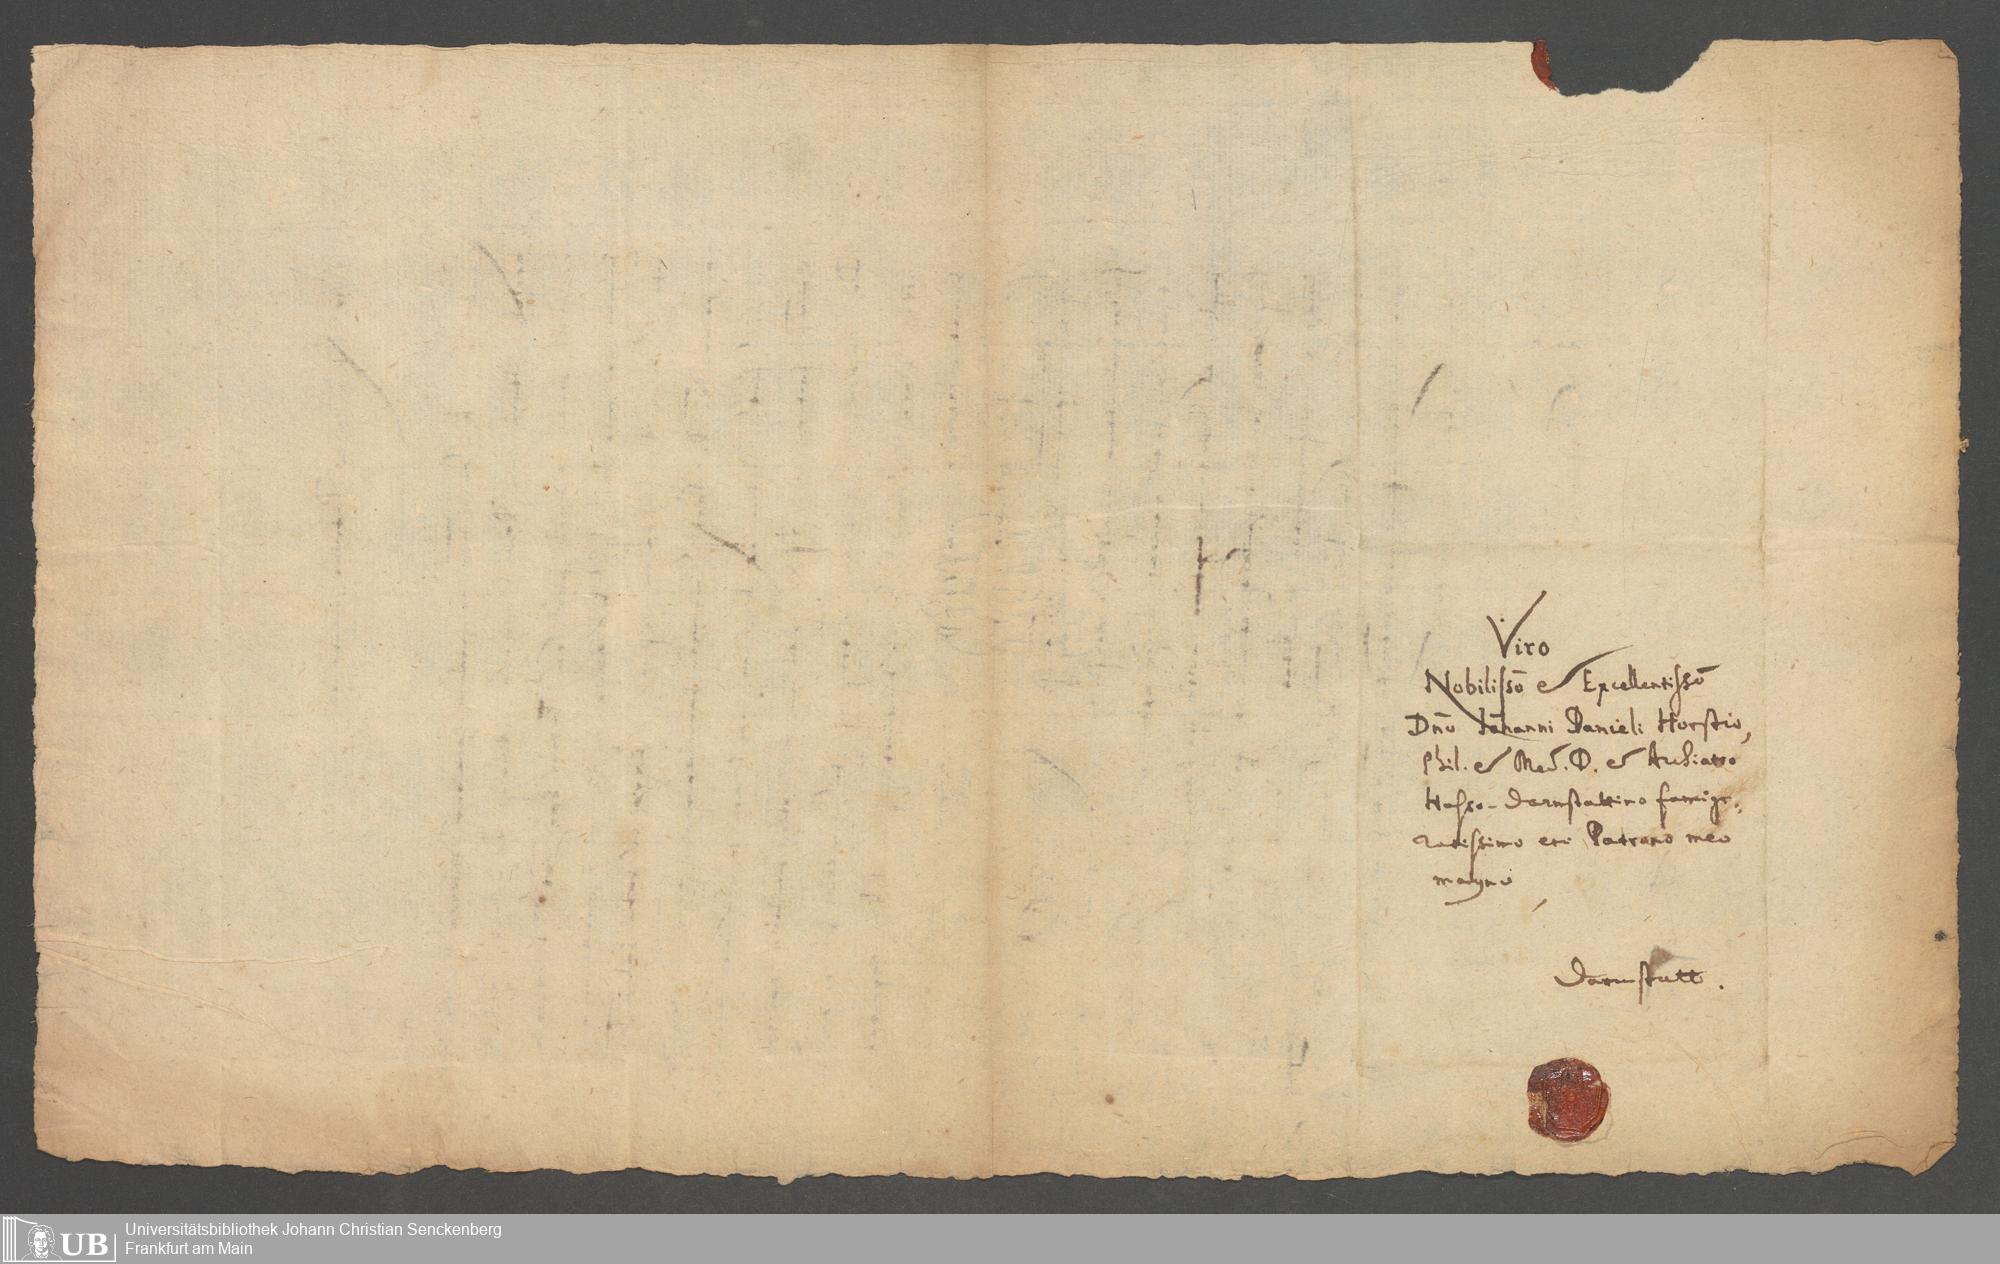 Viro
Nobilissō & Excellentissō
Dnō Johanni Danieli Horstio,
Phil. & Med. D. & Archiatro
Hasso-Darmstattino famige-
ratissimo etc Patrono meo
magno
Darmstatt.
UB
Universitätsbibliothek Johann Christian Senckenberg
Frankfurt am Main